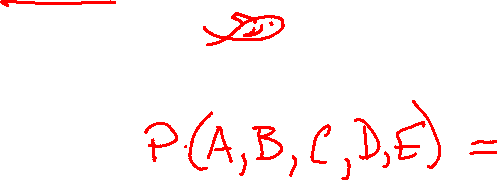 P(A,B,C,D,E) =